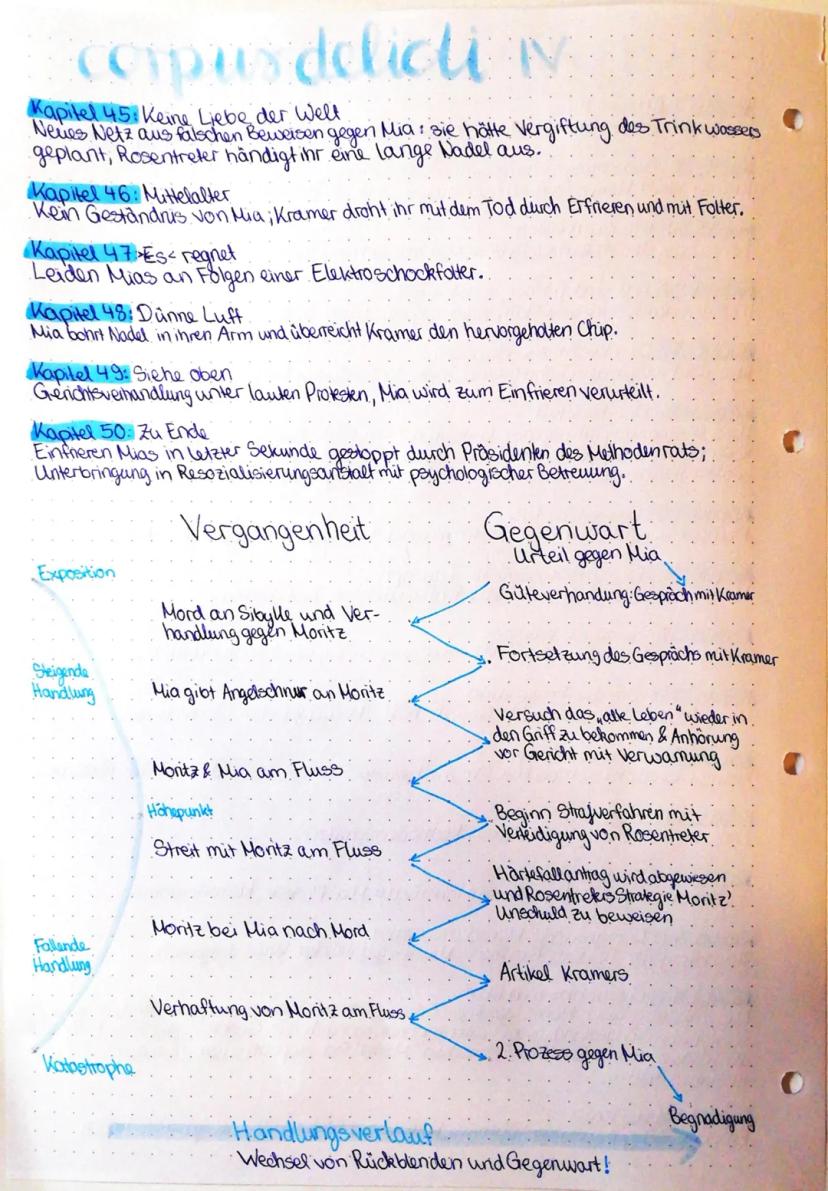 corpus delicti IV
Kapitel 45: Keine Liebe der Welt
Neues Netz aus falschen Beweisen gegen Mia: sie hätte Vergiftung des Trinkwassers
geplant, Rosentreter händigt ihr eine lange Nadel aus.
Kapitel 46: Mittelalter
Kein Geständnis von Mia; Kramer droht ihr mit dem Tod durch Erfrieren und mit Folter.
Kapitel 47: >Es< regnet
Leiden Mias an Folgen einer Elektroschockfolter.
Kapitel 48: Dünne Luft
Mia bohrt Nadel in ihren Arm und überreicht Kramer den hervorgeholten Chip.
Kapitel 49: Siehe oben
Gerichtsverhandlung unter lauten Protesten, Mia wird zum Einfrieren verurteilt.
Kapitel 50: Zu Ende
Einfrieren Mias in letzter Sekunde gestoppt durch Präsidenten des Methodenrats;
Unterbringung in Resozialisierungsanstalt mit psychologischer Betreuung.
Vergangenheit Gegenwart
Urteil gegen Mia
Exposition
Güteverhandung: Gespräch mit Kramer
Mord an Sibylle und Ver-
handlung gegen Moritz
Fortsetzung des Gesprächs mit Kramer
Steigende
Handlung
Mia gibt Angelschnur an Moritz
Versuch das „alte Leben" wieder in
den Griff zu bekommen & Anhörung
vor Gericht mit Verwarnung
Moritz & Mia am Fluss
Höhepunkt
Beginn Strafverfahren mit
Verteidigung von Rosentreter
Streit mit Moritz am Fluss
Härtefallantrag wird abgewiesen
und Rosentreters Strategie Moritz'
Unschuld zu beweisen
Moritz bei Mia nach Mord
Fallende
Handlung
Artikel Kramers
Verhaftung von Moritz am Fluss
2. Prozess gegen Mia
Katastrophe
Begnadigung
Handlungsverlauf
Wechsel von Rückblenden und Gegenwart!